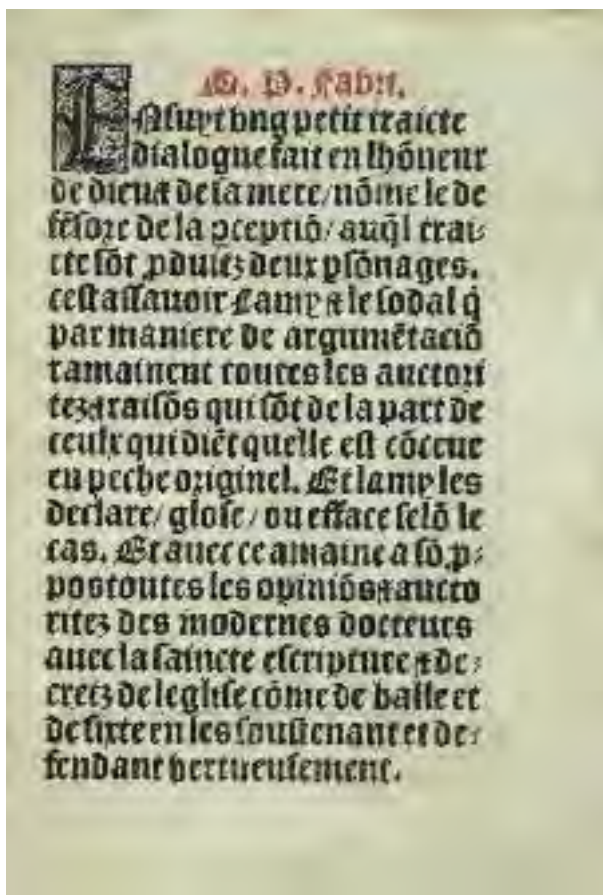 M. P. Fabri.
Ensuyt vng petit traicte
dialogue fait en lhōneur
de dieu ⁊ de sa mere/nōme le de
fēsore de la ꝯceptiō/ auq̄l trai⸗
cte sōt ꝓduitz deux ꝑsōnages.
cest assauoir Lamy ⁊ le sodal q̄
par maniere de argumētaciō
ramainent toutes les auctori
tez ⁊ raisōs qui sōt de la part de
ceulx qui diēt quelle est cōceue
en peche originel. Et lamy les
declare/ glose/ ou efface selō le
cas. Et auec ce amaine a sō ꝓ⸗
pos toutes les opiniōs ⁊ aucto
ritez des modernes docteurs
auec la saincte escripture ⁊ de⸗
cretz de leglise cōme de basle et
de sixte en les soustenant et de⸗
fendant vertueusement.